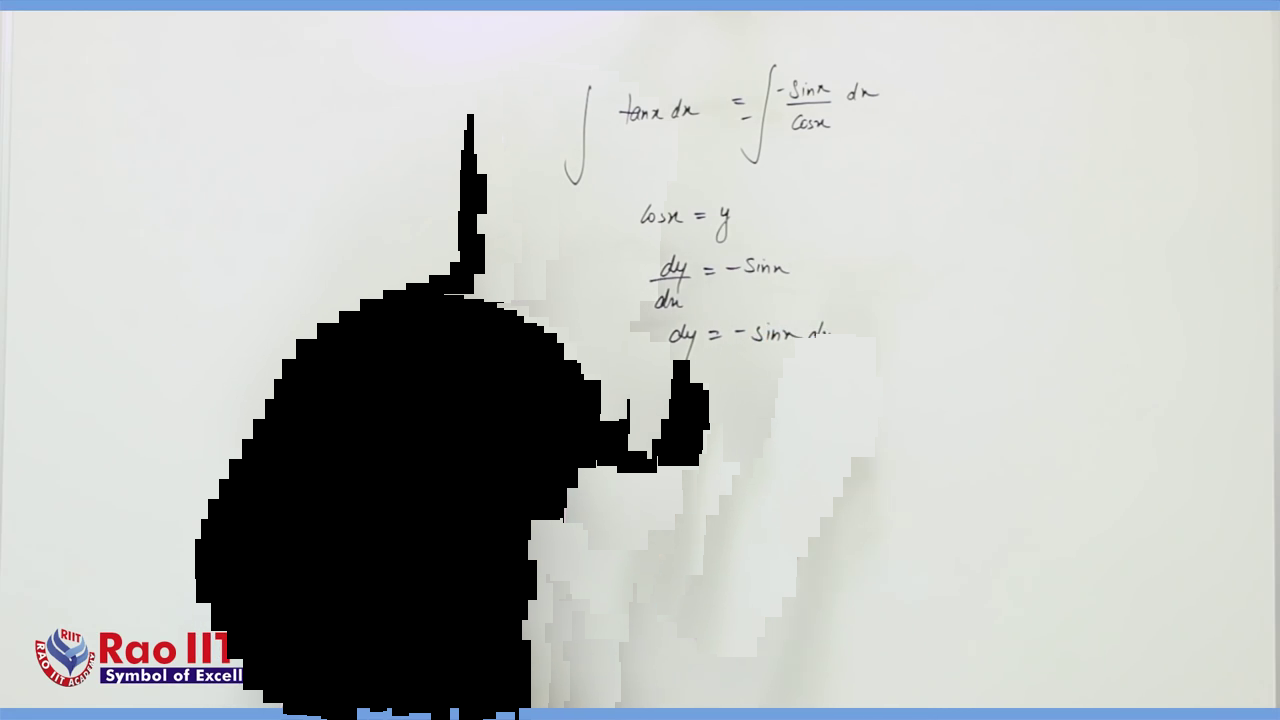 ∫ tanx dx = - ∫ -sinx/cosx dx
cosx = y
dy/dx = -sinx
dy = -sinx
RIIT
RAO IIT ACADEMY
Rao IIT
Symbol of Excell